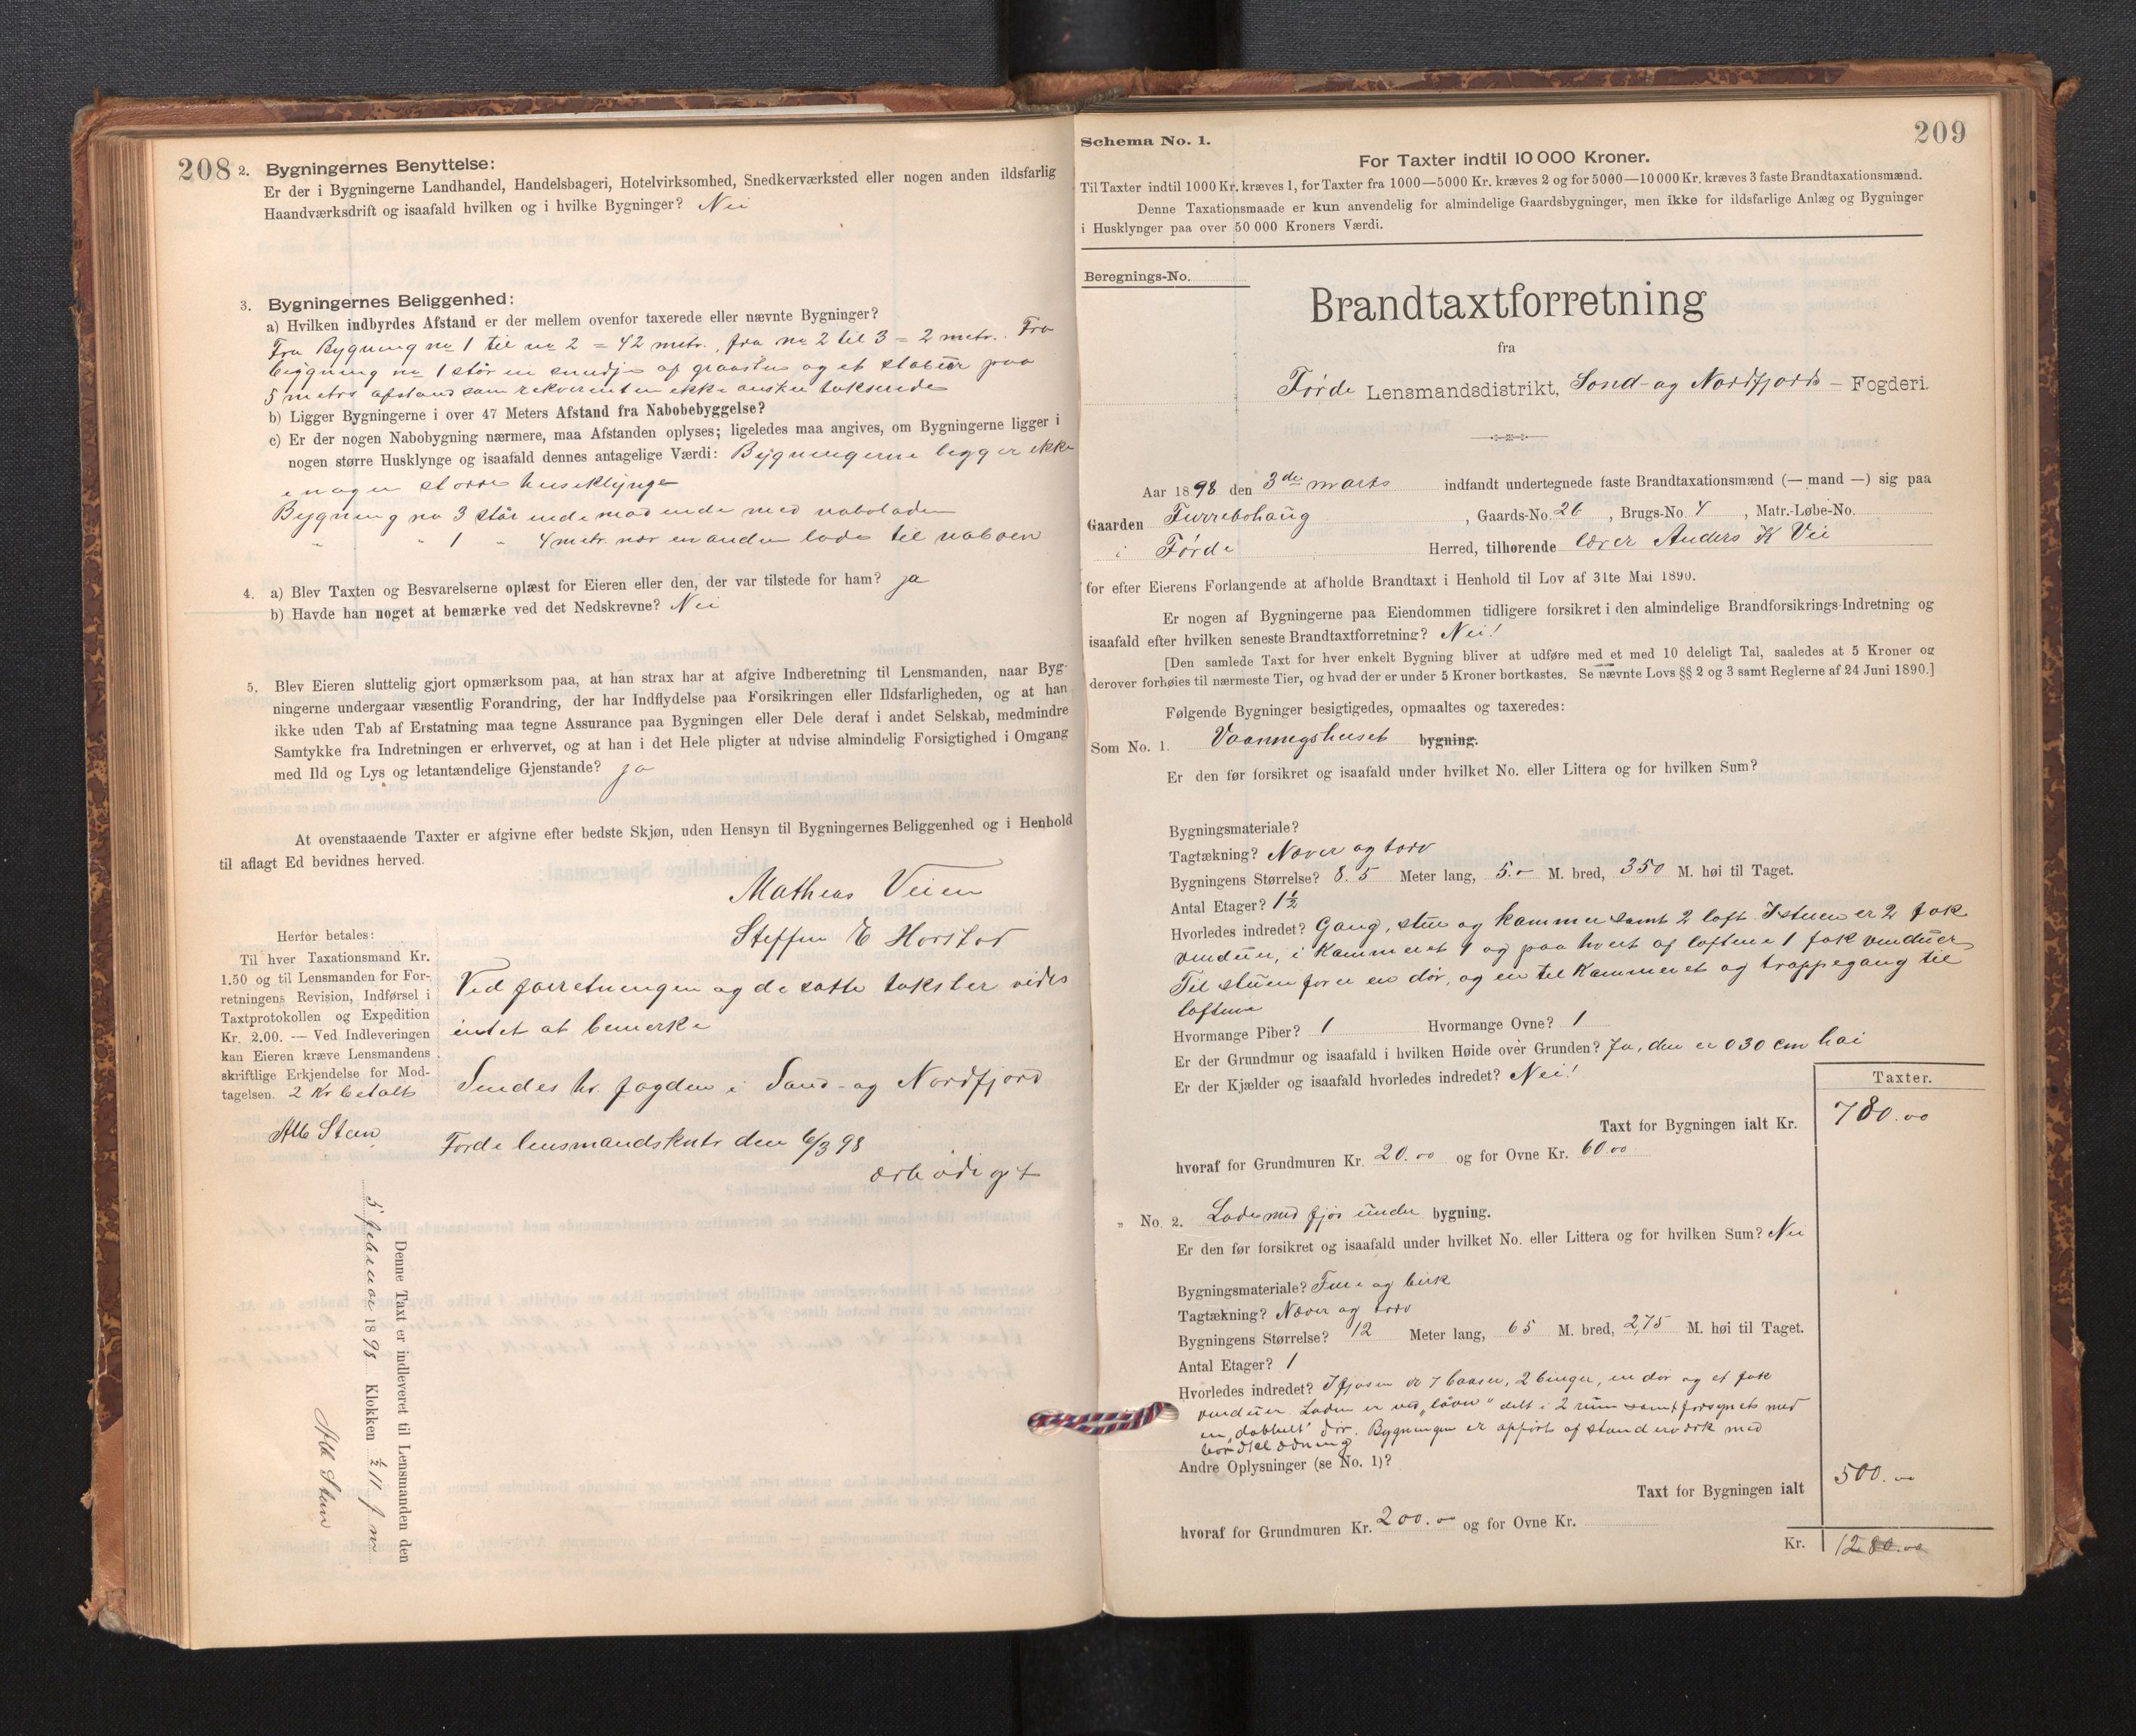 208
2. Bygningernes Benyttelse:
Er der i Bygningerne Landhandel, Handelsbageri, Hotelvirksomhed, Snedkerværksted eller nogen anden ildsfarlig
Haandværksdrift og isaafald hvilken og i hvilke Bygninger? Nei
3. Bygningernes Beliggenhed:
a) Hvilken indbyrdes Afstand er der mellem ovenfor taxerede eller nævnte Bygninger?
Fra Bygning no 1 til no 2 = 42 metr., fra no 2 til 3 = 2 metr. Fra
bygning no 1 står en smidje af graasten og et stabur paa
5 metrs afstand som rekvirenten ikke ønsker takserede
b) Ligger Bygningerne i over 47 Meters Afstand fra Nabobebyggelse?
c) Er der nogen Nabobygning nærmere, maa Afstanden oplyses; ligeledes maa angives, om Bygningerne ligger i
nogen større Husklynge og isaafald dennes antagelige Værdi: Bygningerne ligger ikke
i nogen større huseklynge
Bygning no 3 står ende mod ende med naboladen
" " 1 " 4 metr. nær en anden lade til naboen
4. a) Blev Taxten og Besvarelserne oplæst for Eieren eller den, der var tilstede for ham? ja
b) Havde han noget at bemærke ved det Nedskrevne? Nei
5. Blev Eieren sluttelig gjort opmærksom paa, at han strax har at afgive Indberetning til Lensmanden, naar Byg-
ningerne undergaar væsentlig Forandring, der har Indflydelse paa Forsikringen eller Ildsfarligheden, og at han
ikke uden Tab af Erstatning maa tegne Assurance paa Bygningen eller Dele deraf i andet Selskab, medmindre
Samtykke fra Indretningen er erhvervet, og at han i det Hele pligter at udvise almindelig Forsigtighed i Omgang
med Ild og Lys og letantændelige Gjenstande? ja
At ovenstaaende Taxter er afgivne efter bedste Skjøn, uden Hensyn til Bygningernes Beliggenhed og i Henhold
til aflagt Ed bevidnes herved.
Mathias Veien
Steffen E Horstad
Herfor betales:
Til hver Taxationsmand Kr.
1.50 og til Lensmanden for For-
retningens Revision, Indførsel i
Taxtprotokollen og Expedition
Kr. 2.00. — Ved Indleveringen
kan Eieren kræve Lensmandens
skriftlige Erkjendelse for Mod-
tagelsen. 2 Kr betalt
Alb Stem
Ved forretningen og de satte takster vides
intet at bemerke
Sendes hr. fogden i Sond- og Nordfjord
Førde lensmandskntr den 6/3 98
ærbødigst
Denne Taxt er indleveret til Lensmanden den
5 februar 1898 Klokken ½ 11 f m
Alb Stem
209
Schema No. 1.
For Taxter indtil 10 000 Kroner.
Til Taxter indtil 1000 Kr. kræves 1, for Taxter fra 1000—5000 Kr. kræves 2 og for 5000—10 000 Kr. kræves 3 faste Brandtaxationsmænd.
Denne Taxationsmaade er kun anvendelig for almindelige Gaardsbygninger, men ikke for ildsfarlige Anlæg og Bygninger
i Husklynger paa over 50 000 Kroners Værdi.
Beregnings-No.
Brandtaxtforretning
fra
Førde Lensmandsdistrikt, Sond- og Nordfjords - Fogderi.
Aar 1898 den 3die marts indfandt undertegnede faste Brandtaxationsmænd (— mand —) sig paa
Gaarden Furrebohaug, Gaards-No. 26, Brugs-No. 4, Matr.-Løbe-No.
i Førde Herred, tilhørende lærer Anders K Vei
for efter Eierens Forlangende at afholde Brandtaxt i Henhold til Lov af 31te Mai 1890.
Er nogen af Bygningerne paa Eiendommen tidligere forsikret i den almindelige Brandforsikrings-Indretning og
isaafald efter hvilken seneste Brandtaxtforretning? Nei!
[Den samlede Taxt for hver enkelt Bygning bliver at udføre med et med 10 deleligt Tal, saaledes at 5 Kroner og
derover forhøies til nærmeste Tier, og hvad der er under 5 Kroner bortkastes. Se nævnte Lovs §§ 2 og 3 samt Reglerne af 24 Juni 1890.]
Følgende Bygninger besigtigedes, opmaaltes og taxeredes:
Som No. 1. Vaaningshuset bygning.
Er den før forsikret og isaafald under hvilket No. eller Littera og for hvilken Sum?
Bygningsmateriale?
Tagtækning? Næver og torv
Bygningens Størrelse? 8.5 Meter lang, 5.- M. bred, 350 M. høi til Taget.
Antal Etager? 1½
Hvorledes indredet? Gang, stue og kammer samt 2 loft. I stuen er 2 fak
vinduer, i kammeret 1 og paa hvert af loftene 1 fak vinduer
Til stuen fører en dør, og en til kammeret og trappegang til
loftene
Hvormange Piber? 1 Hvormange Ovne? 1
Er der Grundmur og isaafald i hvilken Høide over Grunden? Ja, den er 030 cm høi
Er der Kjælder og isaafald hvorledes indredet? Nei!
Taxter.
Taxt for Bygningen ialt Kr. 780.00
hvoraf for Grundmuren Kr. 20.00 og for Ovne Kr. 60.00
" No. 2. Lade med fjøs under bygning.
Er den før forsikret og isaafald under hvilket No. eller Littera og for hvilken Sum? Nei
Bygningsmateriale? Furu og birk
Tagtækning? Næver og torv
Bygningens Størrelse? 12 Meter lang, 65 M. bred, 2,75 M. høi til Taget.
Antal Etager? 1
Hvorledes indredet? I fjøsen er 7 baaser, 2 binger, en dør og et fak
vinduer. Laden er ved "låven" delt i 2 rum samt forsynet med
en "dobbelt" dør. Bygningen er opført af standerværk med
bordklædning
Andre Oplysninger (se No. 1)?
Taxt for Bygningen ialt 500.00
hvoraf for Grundmuren Kr. 200.00 og for Ovne Kr.
Kr. 1280.00